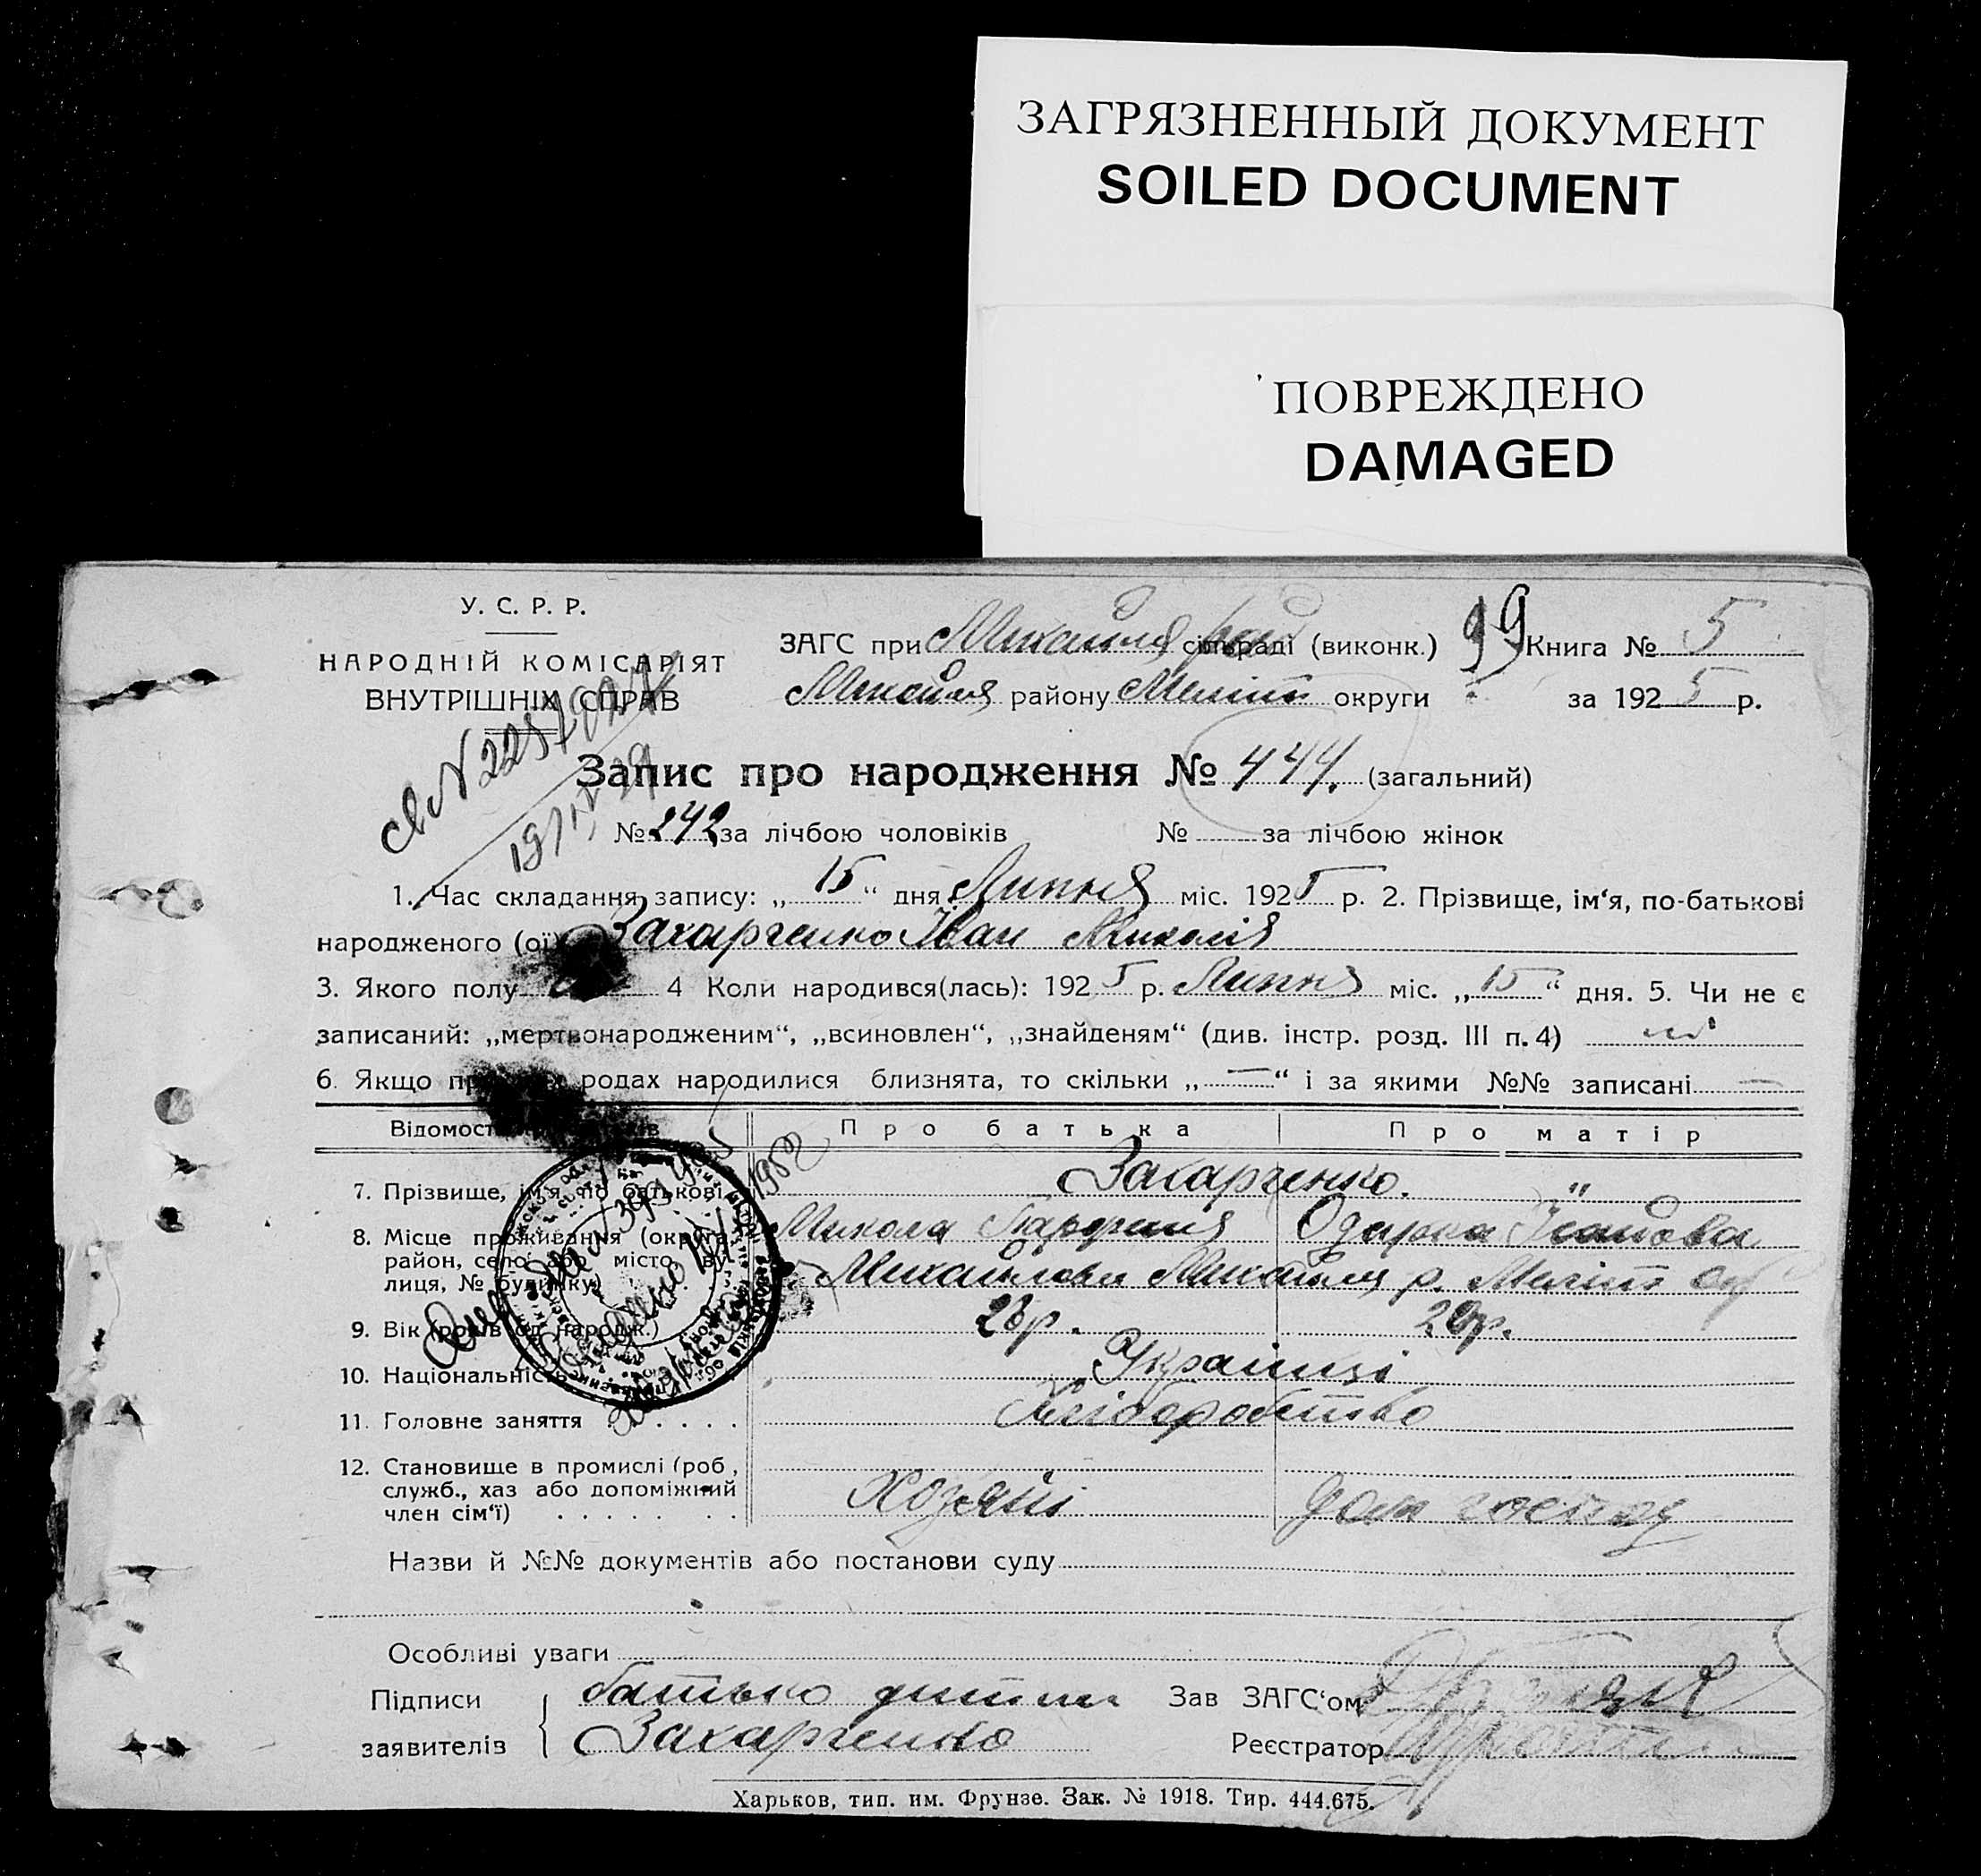 ЗАГРЯЗНЕННЫЙ ДОКУМЕНТ
SOILED DOCUMENT
ПОВРЕЖДЕНО
DAMAGED
У. С. Р. Р.
НАРОДНІЙ КОМІСАРІЯТ
ВНУТРІШНІХ СПРАВ
ЗАГС при Михайля сільраді (виконк.) 99 Книга № 5
Михайля району Меліт округи за 1925 р.
Запис про народження № 444. (загальний)
№ 242 за лічбою чоловіків № за лічбою жінок
1. Час складання запису: „15“ дня Липня міс. 1925 р. 2. Прізвище, ім‘я, по-батькові
народженого (ої) Захарченко Іван Миколія
3. Якого полу 4 Коли народився(лась): 1925 р. Липня міс. „15“ дня. 5. Чи не є
записаний: „мертвонародженим“, „всиновлен“, „знайденям“ (див. інстр. розд. III п. 4) ні
6. Якщо родах народилися близнята, то скільки „—“ і за якими №№ записані —
Відомост Про батька Про матір
7. Прізвище, ім‘я, по батькові Захарченко. "
8. Місце проживання (округа, Микола Одарка
район, село або місто, ву
лиця, № будинку) Михайловка Михайля р. Меліт
9. Вік (років од народж.) 28р.
10. Національність Українці
11. Головне заняття Хліборобство
12. Становище в промислі (роб.,
служб., хаз або допоміжний Хозяїн
член сім‘ї)
Назви й №№ документів або постанови суду
Особливі уваги
Підписи батько дитини Зав ЗАГС‘ом
заявителів Захарченко Реєстратор
Харьков, тип. им. Фрунзе. Зак. № 1918. Тир. 444.675.